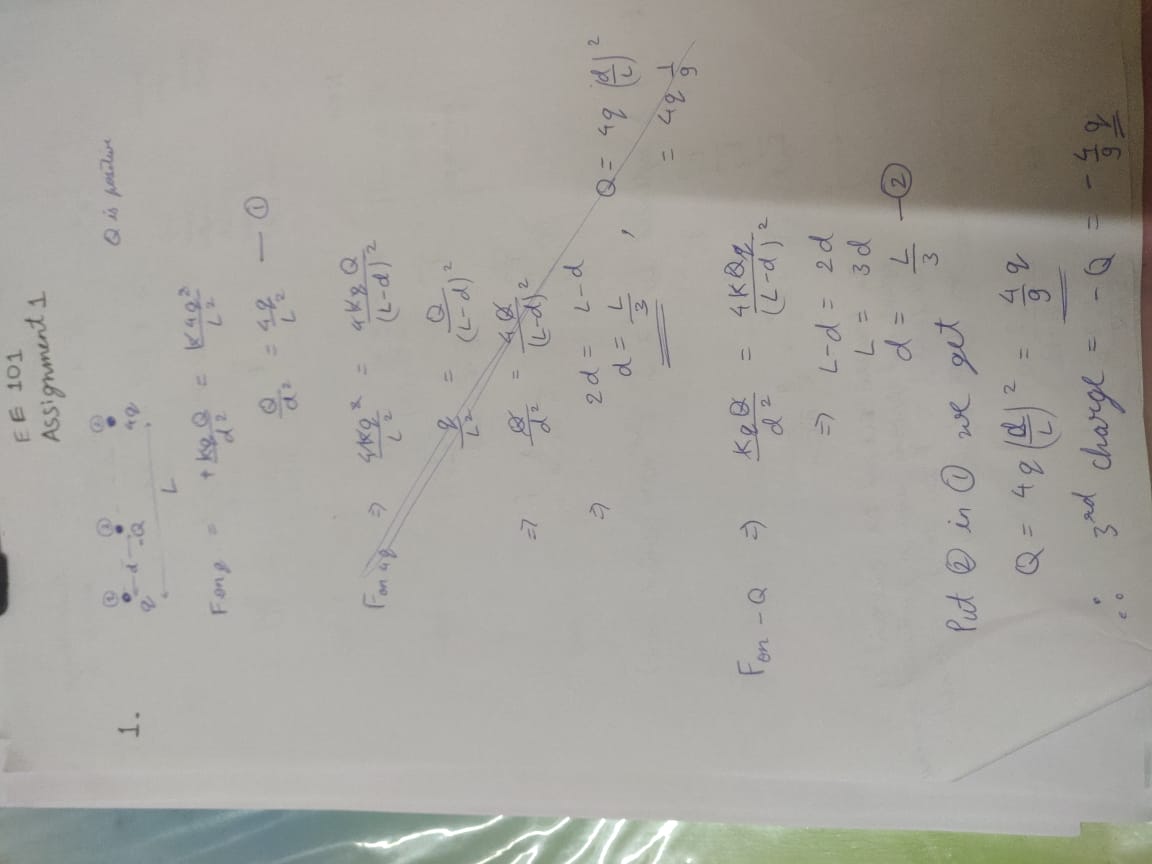 EE 101
Assignment 1
1.
① ③ ②
d
q -Q 4q
L
Q is positive
F on q = + KqQ/d² = K4q²/L²
Q/d² = 4q/L² — ①
F on 4q ⇒ 4Kq²/L² = 4KqQ/(L-d)²
q/L² = Q/(L-d)²
⇒ Q/d² = 4Q/(L-d)²
⇒ 2d = L-d
d = L/3 , Q = 4q (d/L)²
= 4q 1/9
F on -Q ⇒ KqQ/d² = 4KQq/(L-d)²
⇒ L-d = 2d
L = 3d
d = L/3 — ②
Put ② in ① we get
Q = 4q (d/L)² = 4/9 q
∴ 3rd charge = -Q = -4/9 q